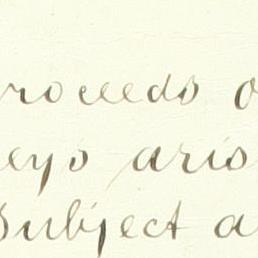 roceeds o
eys aris
Subject a